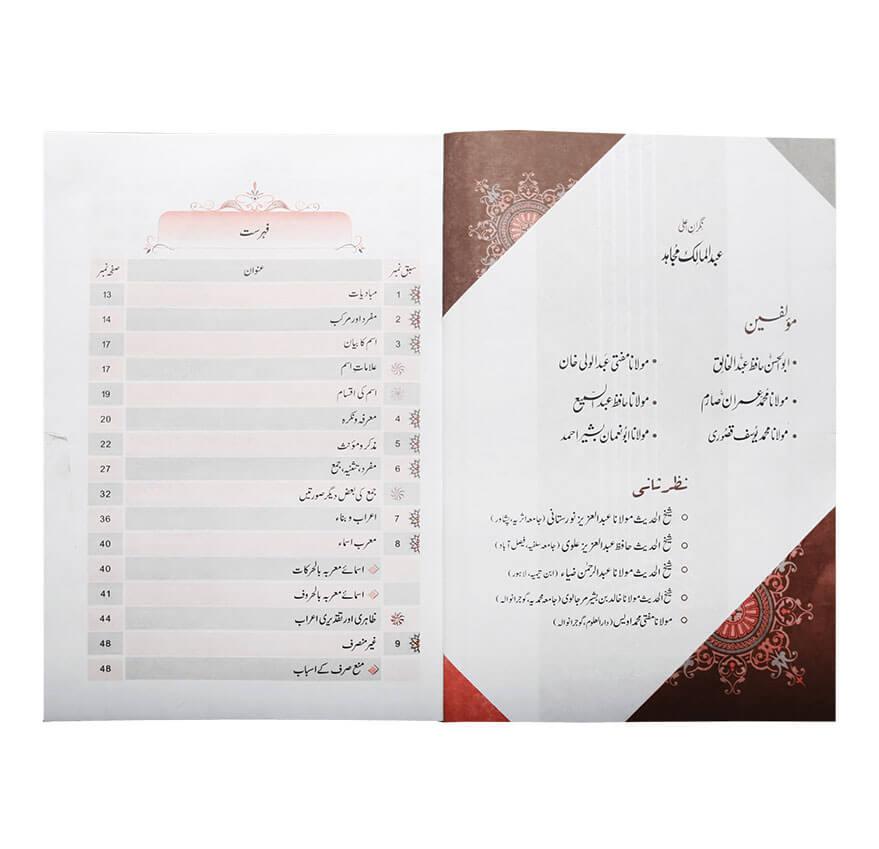 نگران اعلیٰ
عبدالمالک مجاہد
مؤلفین
• ابوالحسن حافظ عبدالخالق • مولانا مفتی عبدالولی خان
• مولانا محمد عمران صارم • مولانا حافظ عبدالسمیع
• مولانا محمد یوسف قصوری • مولانا ابو نعمان بشیر احمد
نظر ثانی
○ شیخ الحدیث مولانا عبدالعزیز نورستانی (جامعہ اثریہ، پشاور)
○ شیخ الحدیث حافظ عبدالعزیز علوی (جامعہ سلفیہ، فیصل آباد)
○ شیخ الحدیث مولانا عبدالرحمٰن ضیاء (ابن تیمیہ، لاہور)
○ شیخ الحدیث مولانا خالد بن بشیر مرجالوی (جامعہ محمدیہ، گوجرانوالہ)
○ مولانا مفتی محمد اویس (دارالعلوم، گوجرانوالہ)
فہرست
سبق نمبر عنوان صفحہ نمبر
1 مبادیات 13
2 مفرد اور مرکب 14
3 اسم کا بیان 17
علامات اسم 17
اسم کی اقسام 19
4 معرفہ و نکرہ 20
5 مذکر و مؤنث 22
6 مفرد، تثنیہ، جمع 27
جمع کی بعض دیگر صورتیں 32
7 اعراب و بناء 36
8 معرب اسماء 40
اسمائے معربہ بالحرکات 40
اسمائے معربہ بالحروف 41
ظاہری اور تقدیری اعراب 44
9 غیر منصرف 48
منع صرف کے اسباب 48